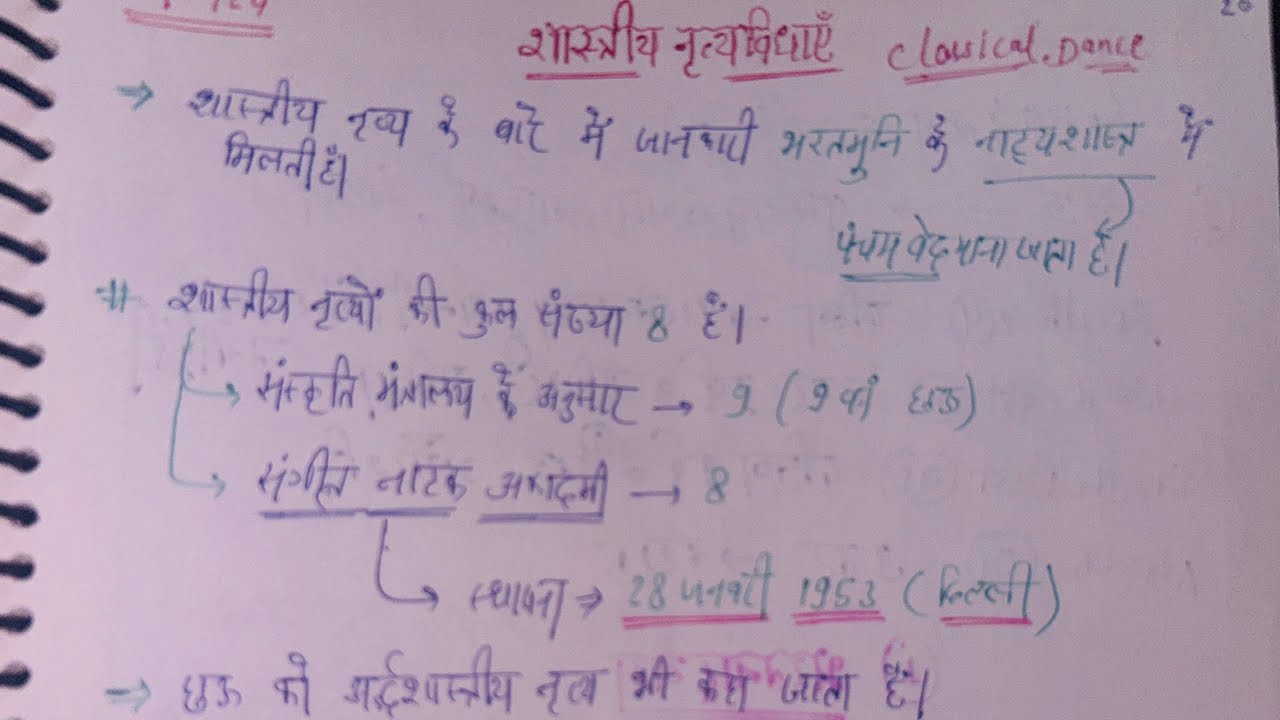 शास्त्रीय नृत्यविधाएँ Classical Dance
→ शास्त्रीय नृत्य के बारे में जानकारी भरतमुनि के नाट्यशास्त्र में
मिलती है।
पंचम वेद माना जाता है।
शास्त्रीय नृत्यों की कुल संख्या 8 है।
→ संस्कृति मंत्रालय के अनुसार → 9 (9वां छऊ)
→ संगीत नाटक अकादमी → 8
→ स्थापना ⇒ 28 जनवरी 1953 (दिल्ली)
⇒ छऊ को अर्द्धशास्त्रीय नृत्य भी कहा जाता है।